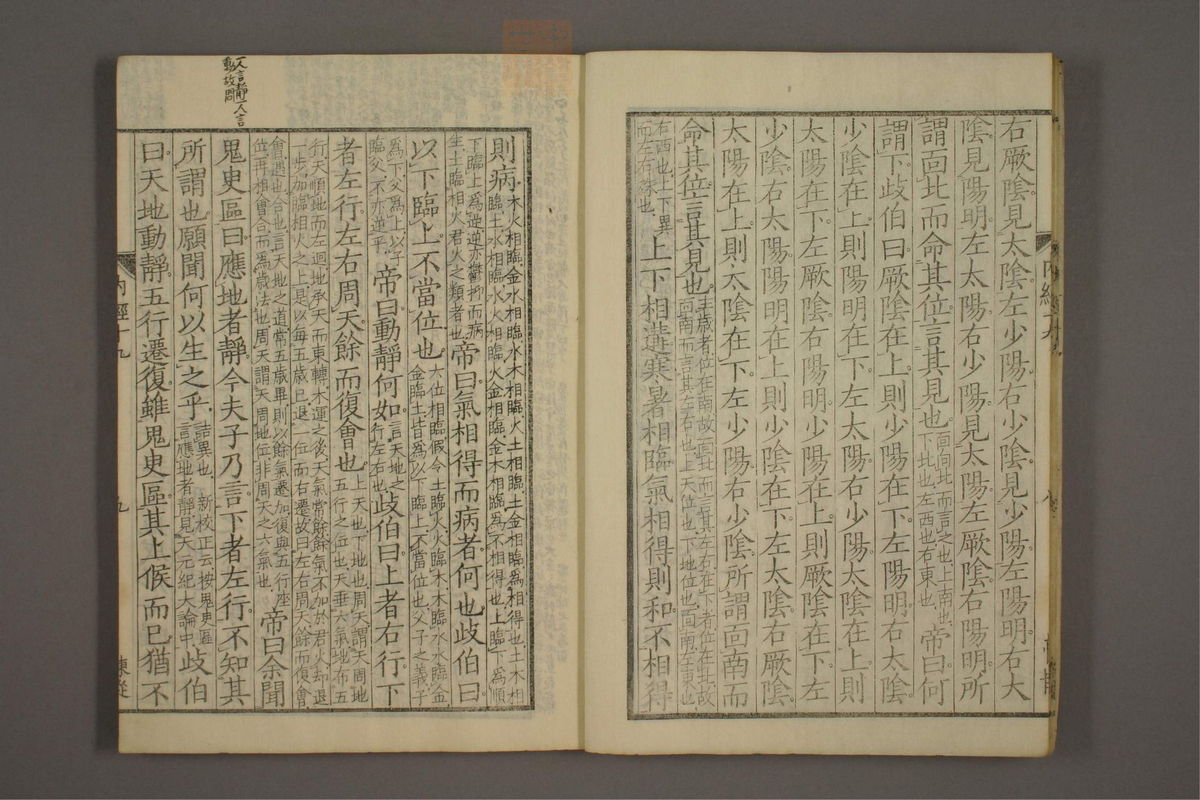 右厥陰見太陰左少陽右少陰見少陽左陽明右太
陰見陽明左太陽右少陽見太陽左厥陰右陽明所
謂面北而命其位言其見也面向北而言之也上南也
下北也左西也右東也帝曰何
謂下歧伯曰厥陰在上則少陽在下左陽明右太陰
少陰在上則陽明在下左太陽右少陽太陰在上則
太陽在下左厥陰右陽明少陽在上則厥陰在下左
少陰右太陽陽明在上則少陰在下左太陰右厥陰
太陽在上則太陰在下左少陽右少陰所謂面南而
命其位言其見也主歲者位在南故面北而言其左右在下者位在北故
面南而言其左右也上天位也下地位也面南左東也
右西也上下異
而左右殊也上下相遘寒暑相臨氣相得則和不相得
則病木火相臨金水相臨水木相臨火土相臨土金相臨爲相得也土木相
臨土水相臨水火相臨火金相臨金木相臨爲不相得也上臨下爲順
下臨上爲逆逆亦鬱抑而病
生土臨相火君火之類者也帝曰氣相得而病者何也歧伯曰
以下臨上不當位也六位相臨假令土臨火火臨木木臨水水臨金
金臨土皆爲以下臨上不當位也父子之義子
爲下父爲上以子
臨父不亦逆乎帝曰動靜何如言天地之
行左右也歧伯曰上者右行下
者左行左右周天餘而復會也上天也下地也周天謂天周地
五行之位也天垂六氣地布五
行天順地而左迴地承天而東轉木運之後天氣常餘餘氣不加於君火却退
一步加臨相火之上是以每五歲已退一位而右遷故曰左右周天餘而復會
會遇也合也言天地之道常五歲畢則以餘氣遷加復與五行座
位再相會合而爲歲法也周天謂天周地位非周天之六氣也帝曰余聞
鬼臾區曰應地者靜今夫子乃言下者左行不知其
所謂也願聞何以生之乎詰異也新校正云按鬼臾區
言應地者靜見天元紀大論中歧伯
曰天地動靜五行遷復雖鬼臾區其上候而已猶不
一人言靜一人言
動故問
內經十九
九